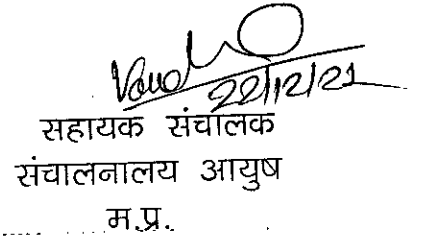 22/12/21
सहायक संचालक
संचालनालय आयुष
म.प्र.